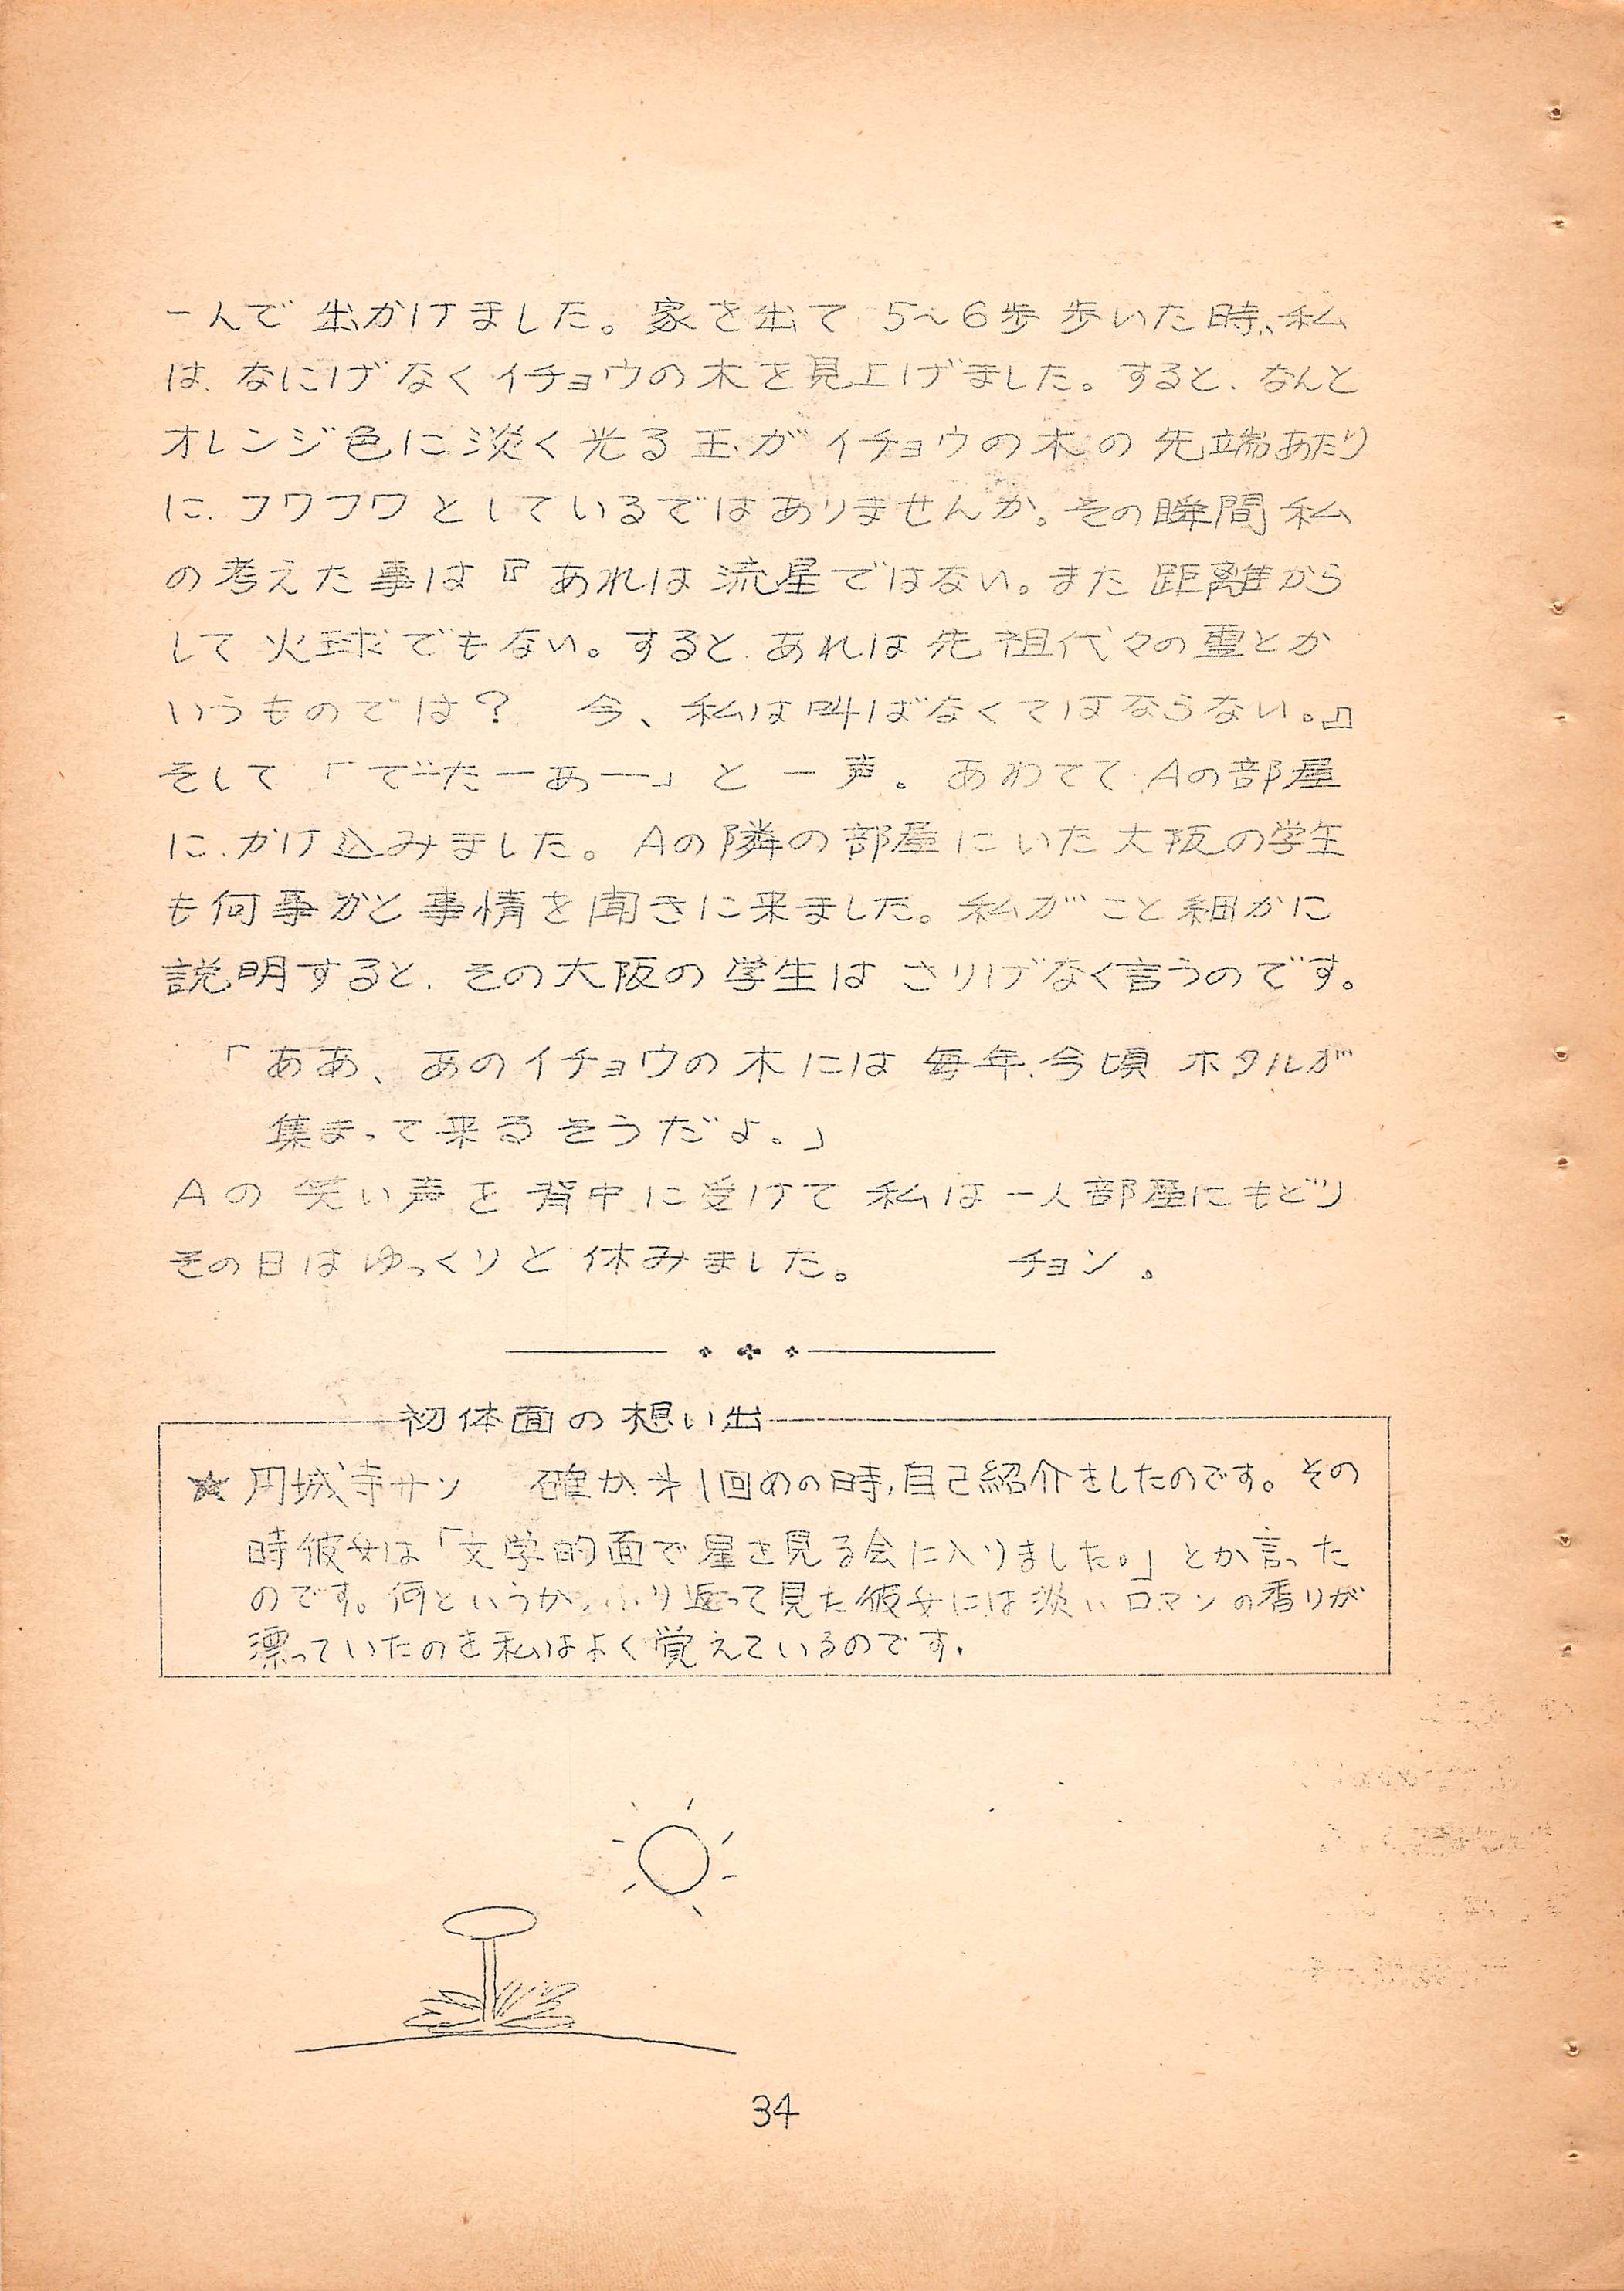 一人で出かけました。家を出て5～6歩歩いた時、私
は、なにげなくイチョウの木を見上げました。すると、なんと
オレンジ色に淡く光る玉がイチョウの木の先端あたり
に、フワフワとしているではありませんか。その瞬間私
の考えた事は『あれは流星ではない。また距離から
して火球でもない。すると、あれは先祖代々の霊とか
いうものでは？ 今、私は叫ばなくてはならない。』
そして「でーたーあー」と一声。あわてて、Aの部屋
に、かけ込みました。Aの隣の部屋にいた大阪の学生
も何事かと事情を聞きに来ました。私がこと細かに
説明すると、その大阪の学生はさりげなく言うのです。
「ああ、あのイチョウの木には毎年、今頃ホタルが
集まって来るそうだよ。」
Aの笑い声を背中に受けて私は一人部屋にもどり
その日はゆっくりと休みました。 チョン。
初体面の想い出
★円城寺サン 確か、第1回めの時、自己紹介をしたのです。その
時彼女は「文学的面で星を見る会に入りました。」とか言った
のです。何というか、ふり返って見た彼女には淡いロマンの香りが
漂っていたのを私はよく覚えているのです.
34